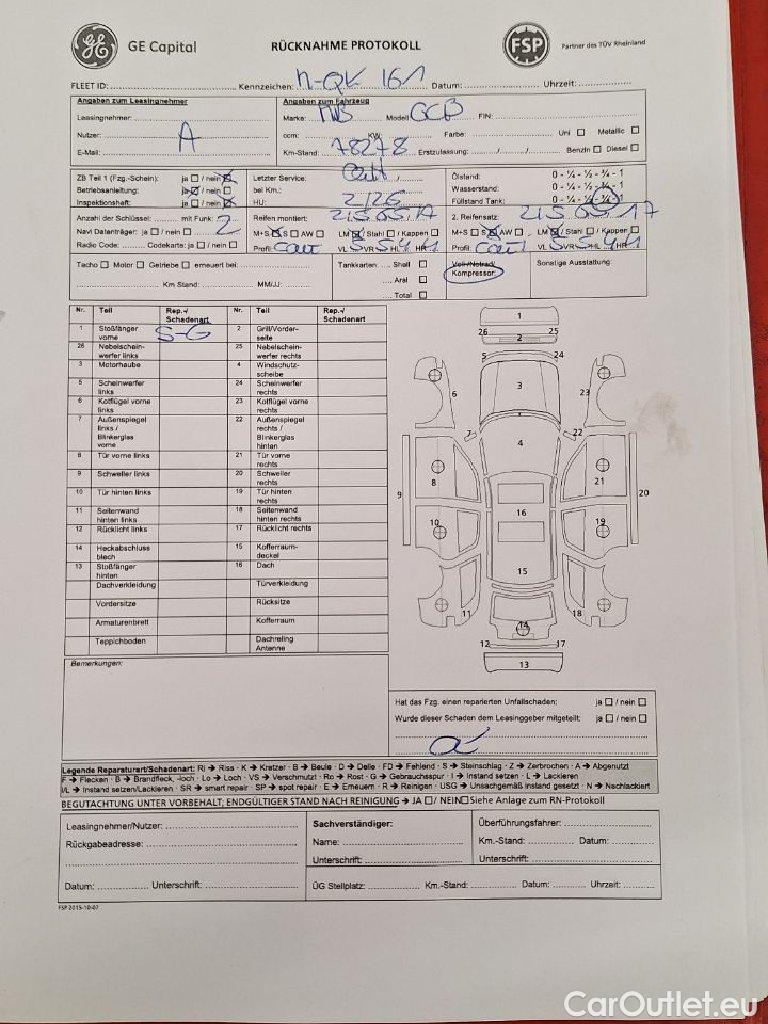 GE Capital
RÜCKNAHME PROTOKOLL
FSP
Partner des TÜV Rheinland
FLEET ID: Kennzeichen: N-QV 161 Datum: Uhrzeit:
Angaben zum Leasingnehmer
Leasingnehmer:
Nutzer: A
E-Mail:
Angaben zum Fahrzeug
Marke: MB Modell: GCB FIN:
ccm: KW: Farbe: Uni Metallic
Km-Stand: 78278 Erstzulassung: / / Benzin Diesel
ZB Teil 1 (Fzg.-Schein): ja / nein
Betriebsanleitung: ja / nein
Inspektionsheft: ja / nein
Letzter Service:
bei Km.:
HU: 2/26
Ölstand: 0 - ¼ - ½ - ¾ - 1
Wasserstand: 0 - ¼ - ½ - ¾ - 1
Füllstand Tank: 0 - ¼ - ½ - ¾ - 1
Anzahl der Schlüssel: mit Funk: 2
Navi Datenträger: ja / nein
Radio Code: Codekarte: ja / nein
Reifen montiert: 215 65 17
M+S S AW LM / Stahl / Kappen
Profil: VL 5 VR 5 HL 4 HR 1
2. Reifensatz: 215 65 17
M+S S AW LM / Stahl / Kappen
Profil: VL 5 VR 5 HL 4 HR 1
Tacho Motor Getriebe erneuert bei:
Km Stand: MM/JJ:
Tankkarten: Shell
Aral
Total
Voll-/Notrad/
Kompressor
Sonstige Ausstattung:
Nr. Teil Rep.-/ Schadenart Nr. Teil Rep.-/ Schadenart
1 Stoßfänger vorne S-G 2 Grill/Vorder-seite
26 Nebelschein-werfer links 25 Nebelschein-werfer rechts
3 Motorhaube 4 Windschutz-scheibe
5 Scheinwerfer links 24 Scheinwerfer rechts
6 Kotflügel vorne links 23 Kotflügel vorne rechts
7 Außenspiegel links / Blinkerglas vorne 22 Außenspiegel rechts / Blinkerglas hinten
8 Tür vorne links 21 Tür vorne rechts
9 Schweller links 20 Schweller rechts
10 Tür hinten links 19 Tür hinten rechts
11 Seitenwand hinten links 18 Seitenwand hinten rechts
12 Rücklicht links 17 Rücklicht rechts
14 Heckabschluss blech 15 Kofferraum-deckel
13 Stoßfänger hinten 16 Dach
Dachverkleidung Türverkleidung
Vordersitze Rücksitze
Armaturenbrett Kofferraum
Teppichboden Dachreling Antenne
1
26 25
2
5 24
3
6 23
7 22
4
8 21
9 20
16
10 19
15
11 18
14
12 17
13
Bemerkungen:
Hat das Fzg. einen reparierten Unfallschaden: ja / nein
Wurde dieser Schaden dem Leasinggeber mitgeteilt: ja / nein
Legende Reparaturart/Schadenart: Ri → Riss · K → Kratzer · B → Beule · D → Delle · FD → Fehlend · S → Steinschlag · Z → Zerbrochen · A → Abgenutzt
F → Flecken · B → Brandfleck, -loch · Lo → Loch · VS → Verschmutzt · Ro → Rost · G → Gebrauchsspur · I → Instand setzen · L → Lackieren
I/L → Instand setzen/Lackieren · SR → smart repair · SP → spot repair · E → Erneuern · R → Reinigen / USG → Unsachgemäß instand gesetzt · N → Nachlackiert
BEGUTACHTUNG UNTER VORBEHALT; ENDGÜLTIGER STAND NACH REINIGUNG → JA / NEIN Siehe Anlage zum RN-Protokoll
Leasingnehmer/Nutzer:
Rückgabeadresse:
Datum: Unterschrift:
Sachverständiger:
Name:
Unterschrift:
Überführungsfahrer:
Km.-Stand: Datum:
Unterschrift:
ÜG Stellplatz: Km.-Stand: Datum: Uhrzeit:
FSP 2-015-10-07
CarOutlet.eu